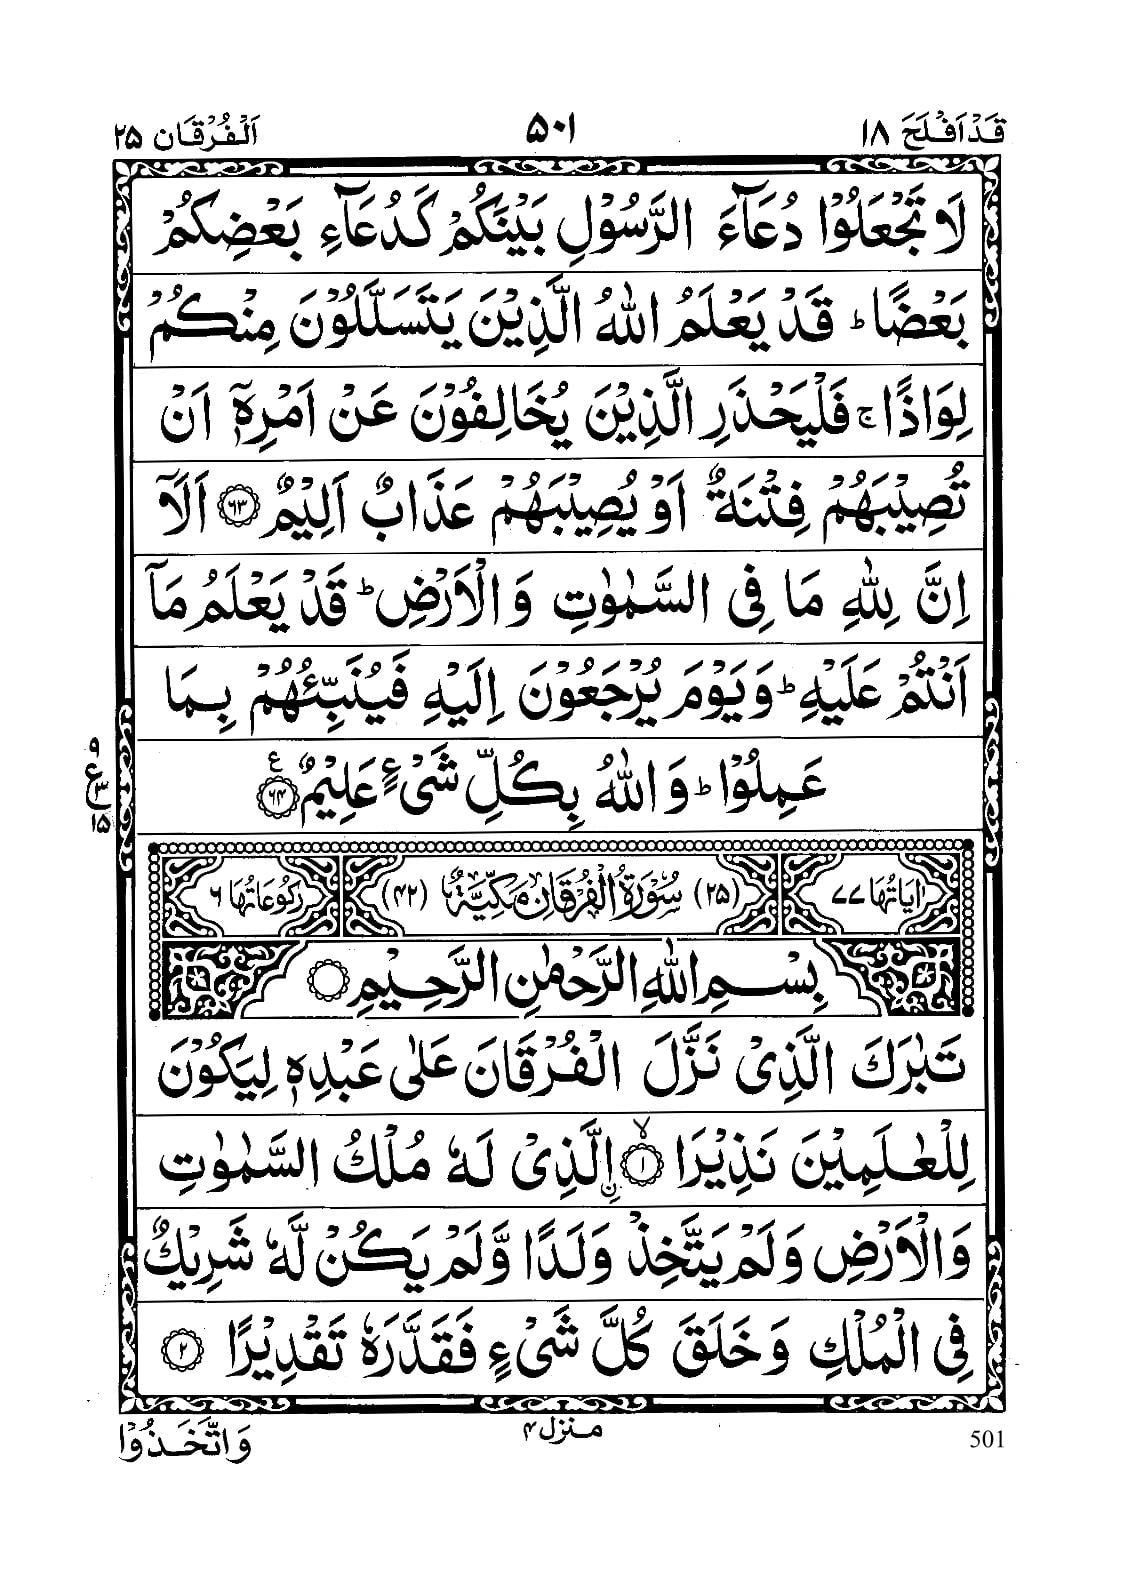 قَدْاَفْلَحَ ١٨ ٥٠١ اَلْفُرْقَان ٢٥
لَا تَجْعَلُوْا دُعَآءَ الرَّسُوْلِ بَيْنَكُمْ كَدُعَآءِ بَعْضِكُمْ
بَعْضًا ؕ قَدْ يَعْلَمُ اللّٰهُ الَّذِيْنَ يَتَسَلَّلُوْنَ مِنْكُمْ
لِوَاذًا ۚ فَلْيَحْذَرِ الَّذِيْنَ يُخَالِفُوْنَ عَنْ اَمْرِهٖۤ اَنْ
تُصِيْبَهُمْ فِتْنَةٌ اَوْ يُصِيْبَهُمْ عَذَابٌ اَلِيْمٌ ﴿۶۳﴾ اَلَاۤ
اِنَّ لِلّٰهِ مَا فِى السَّمٰوٰتِ وَالْاَرْضِ ؕ قَدْ يَعْلَمُ مَاۤ
اَنْتُمْ عَلَيْهِ ؕ وَيَوْمَ يُرْجَعُوْنَ اِلَيْهِ فَيُنَبِّئُهُمْ بِمَا
عَمِلُوْا ؕ وَاللّٰهُ بِكُلِّ شَىْءٍ عَلِيْمٌ ﴿۶۴﴾ ع
۹
ع ۳
۱۵
اٰيَاتُهَا ٧٧ (٢٥) سُوْرَةُ الْفُرْقَانِ مَكِّيَّةٌ (٤٢) رُكُوْعَاتُهَا ٦
بِسْمِ اللّٰهِ الرَّحْمٰنِ الرَّحِيْمِ
تَبٰرَكَ الَّذِىْ نَزَّلَ الْفُرْقَانَ عَلٰى عَبْدِهٖ لِيَكُوْنَ
لِلْعٰلَمِيْنَ نَذِيْرًا ﴿۱﴾ۙ اِ۟لَّذِىْ لَهٗ مُلْكُ السَّمٰوٰتِ
وَالْاَرْضِ وَلَمْ يَتَّخِذْ وَلَدًا وَّلَمْ يَكُنْ لَّهٗ شَرِيْكٌ
فِى الْمُلْكِ وَخَلَقَ كُلَّ شَىْءٍ فَقَدَّرَهٗ تَقْدِيْرًا ﴿۲﴾
منزل ۴
وَاتَّخَذُوْا
501